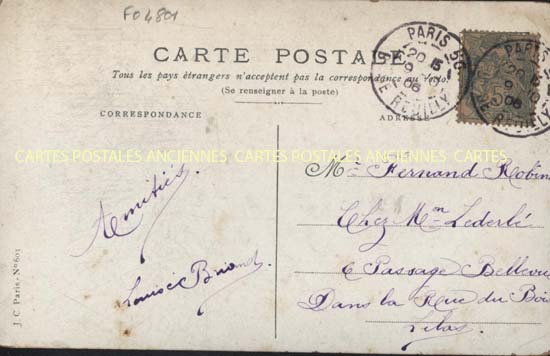 FO 4801
CARTE POSTALE
Tous les pays étrangers n'acceptent pas la correspondance au recto.
(Se renseigner à la poste)
CORRESPONDANCE
ADRESSE
PARIS 56
20
5 9
06
REUILLY
PARIS 56
20
9
06
REUILLY
CARTES POSTALES ANCIENNES CARTES POSTALES ANCIENNES CARTES
Amitiés
Louise Briand
Mr Fernand Robin
Chez Mon Lederlé
6 Passage Bellevu
Dans la Rue du Bois
Lilas
J. C. Paris - No 601